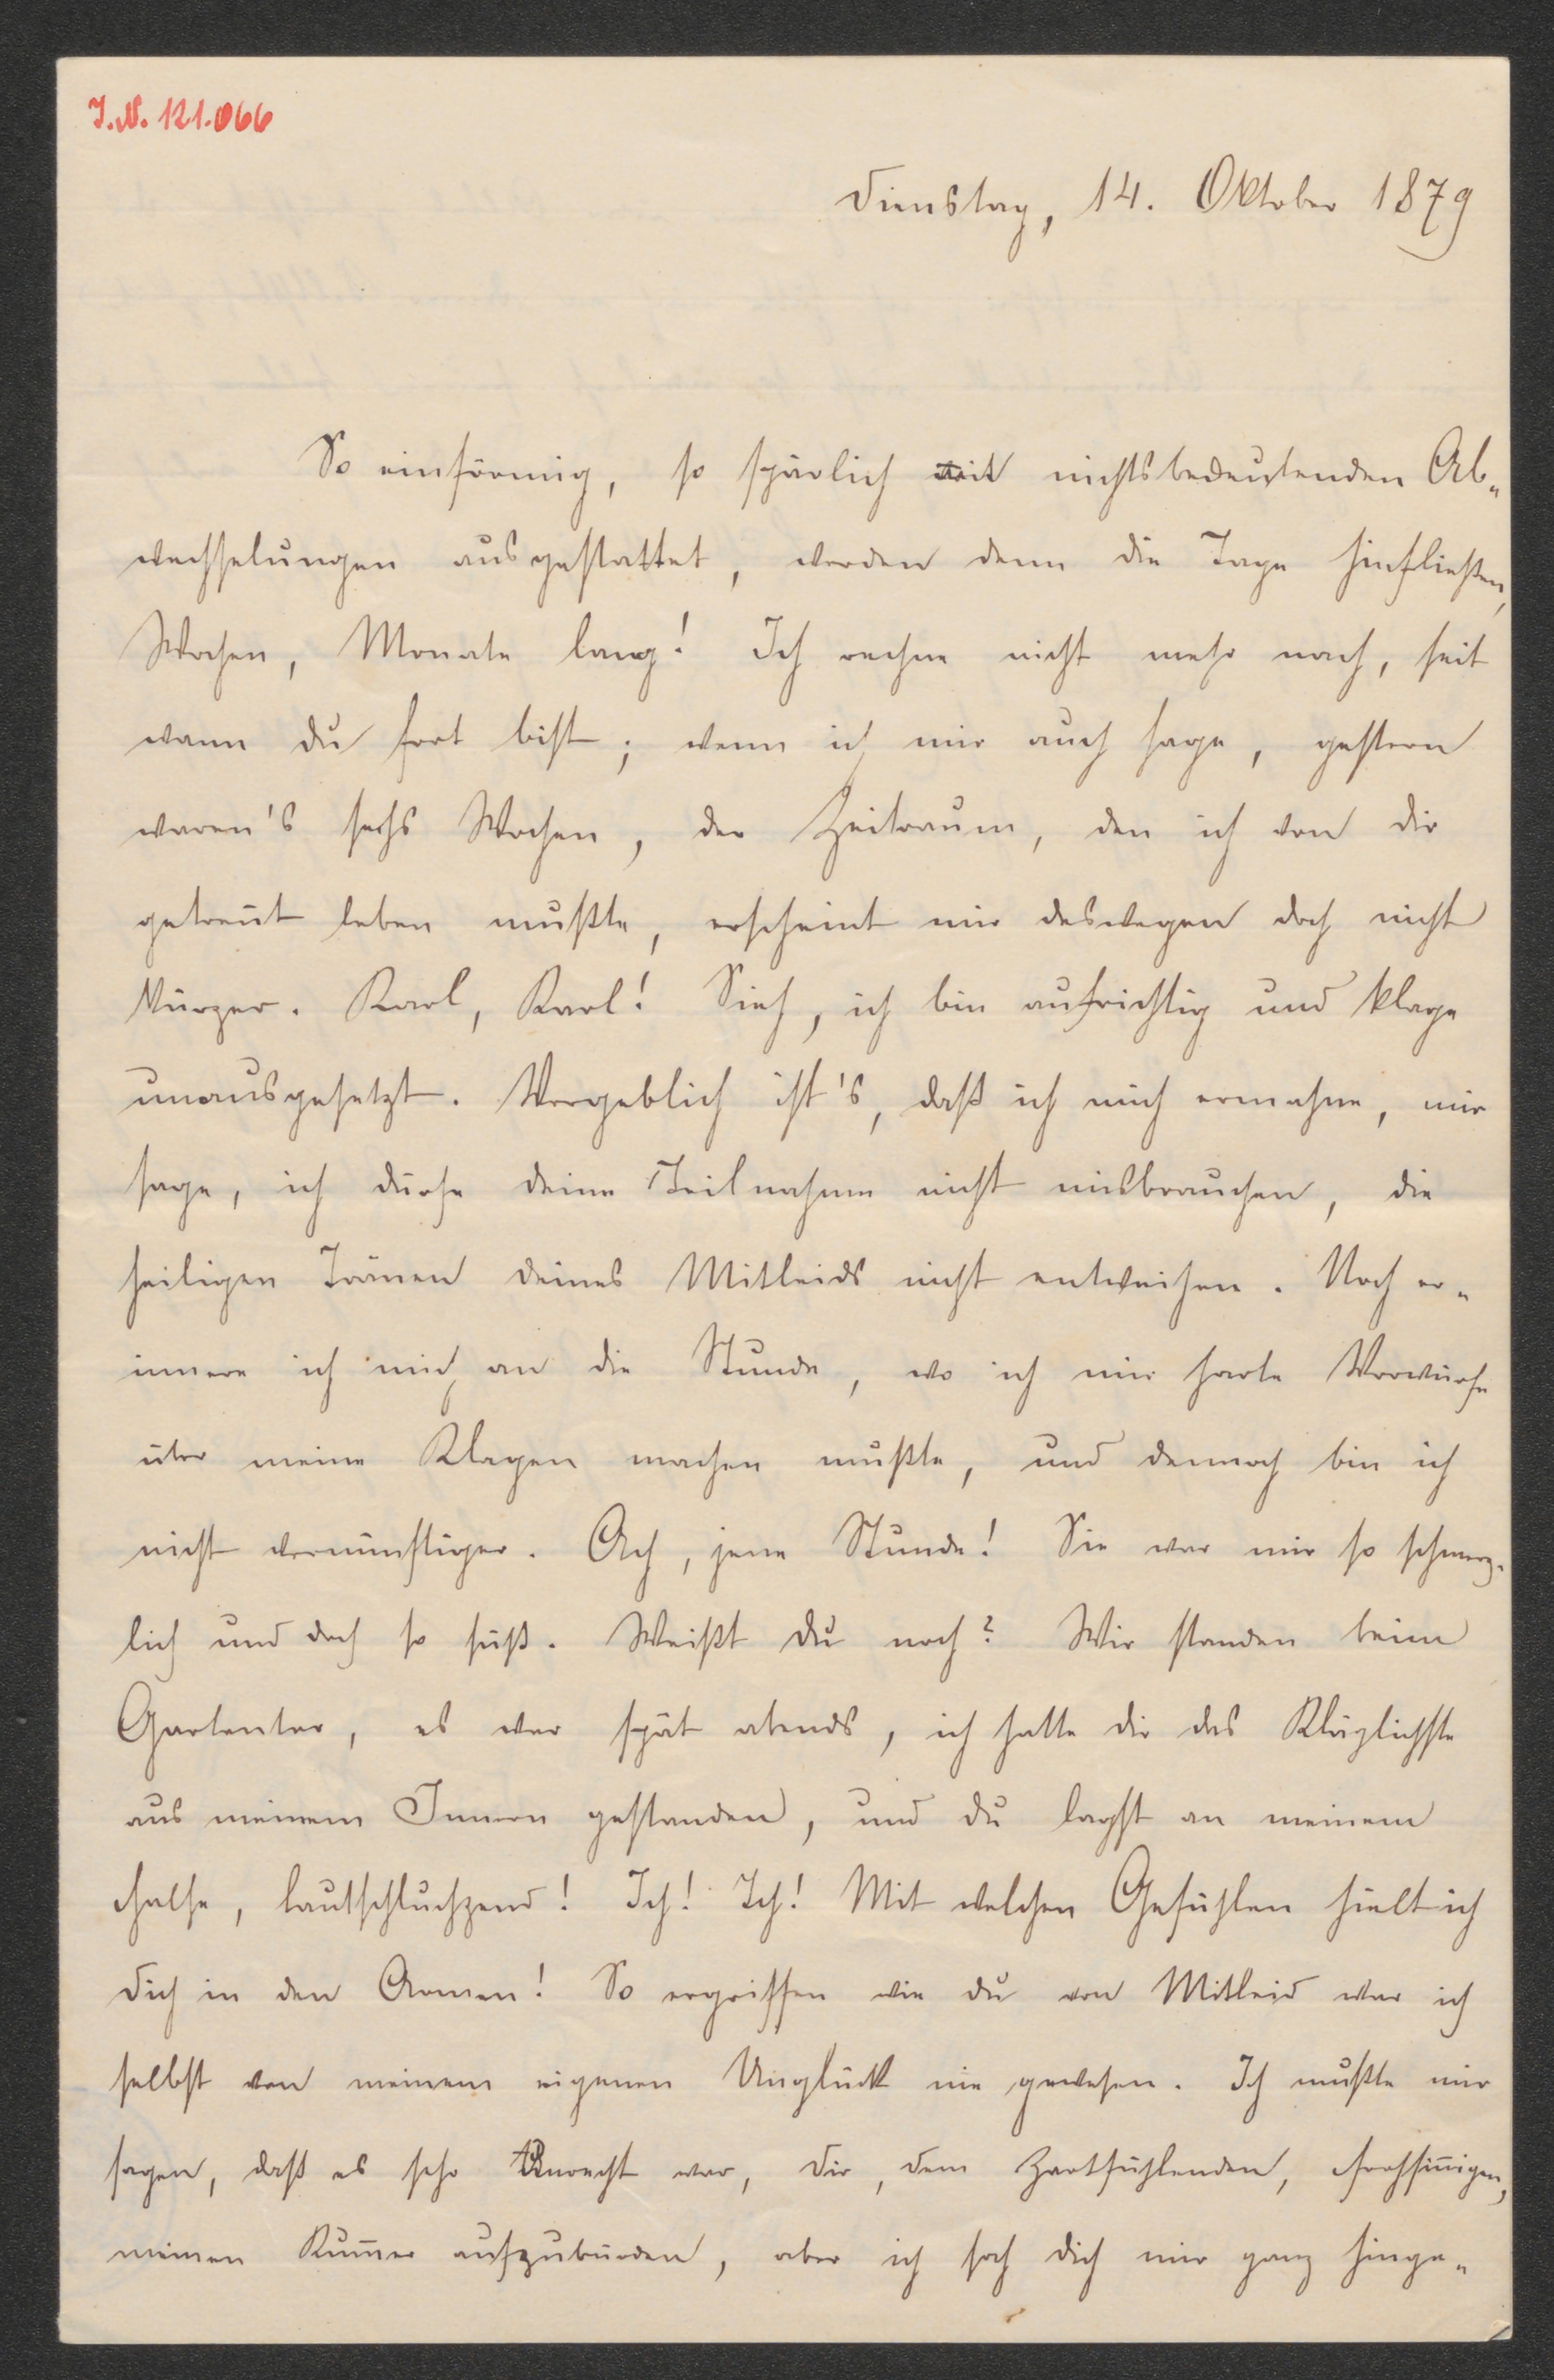 J.N. 121.066
Dienstag, 14. Oktober 1879
So einförmig, so spärlich mit nichtsbedeutenden Ab-
wechselungen ausgestattet, werden denn die Tage hinfließen,
Wochen, Monate lang! Ich rechne nicht mehr nach, seit
wann du fort bist; wenn ich mir auch sage, gestern
waren's sechs Wochen, der Zeitraum, den ich von dir
getrennt leben mußte, erscheint mir deswegen doch nicht
kürzer. Karl, Karl! Sieh, ich bin aufrichtig und klage
unausgesetzt. Vergeblich ist's, daß ich mich ermahne, mir
sage, ich dürfe deine Teilnahme nicht misbrauchen, die
heiligen Tränen deines Mitleids nicht entweihen. Noch er-
innere ich mich an die Stunde, wo ich mir harte Vorwürfe
über meine Klagen machen mußte, und dennoch bin ich
nicht vernünftiger. Ach, jene Stunde! Sie war mir so schmerz-
lich und doch so süß. Weißt du noch? Wir standen beim
Gartentor, es war spät abends, ich hatte dir das Kläglichste
aus meinem Innern gestanden, und du lagst an meinem
Halse, lautschluchzend! Ich! Ich! Mit welchen Gefühlen hielt ich
dich in den Armen! So ergriffen wie du von Mitleid war ich
selbst von meinem eigenen Unglück nie gewesen. Ich mußte mir
sagen, daß es sehr Unrecht war, dir, dem Zartfühlenden, Hochsinnigen,
meinen Kummer aufzubürden, aber ich sah dich mir ganz hinge-